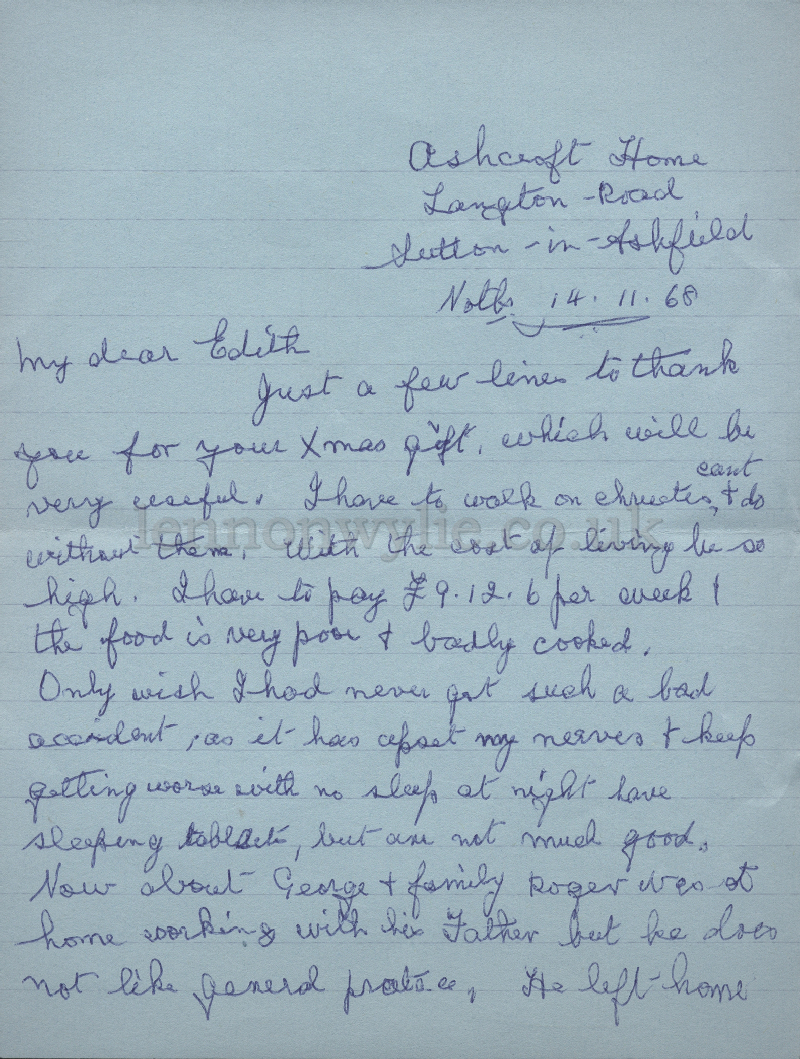 Ashcroft Home
Langton-Road
Sutton-in-Ashfield
Notts. 14.11.68
My dear Edith
Just a few lines to thank
you for your Xmas gift, which will be
very useful. I have to walk on chructes, & cant do
without them. With the cost of living be so
high. I have to pay £9.12.6 per week &
the food is very poor & badly cooked.
Only wish I had never got such a bad
accident, as it has upset my nerves & keep
getting worse with no sleep at night have
sleeping tablets, but are not much good.
Now about George & family Roger was at
home working with his Father but he does
not like general pratice, He left home
lennonwylie.co.uk